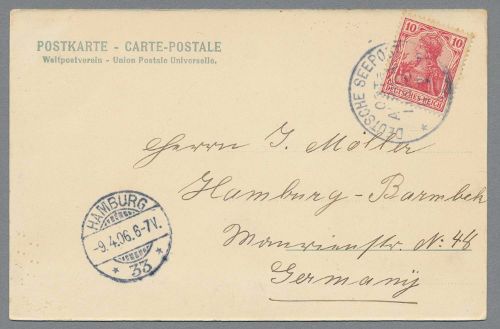 POSTKARTE - CARTE-POSTALE
Weltpostverein - Union Postale Universelle.
10 10
DEUTSCHES REICH
DEUTSCHE SEEPOST
Herrn J. Möller
Hamburg-Barmbek
Maurienstr. No. 48
Germany
HAMBURG
-9.4.06.6-7V.
* 33 *